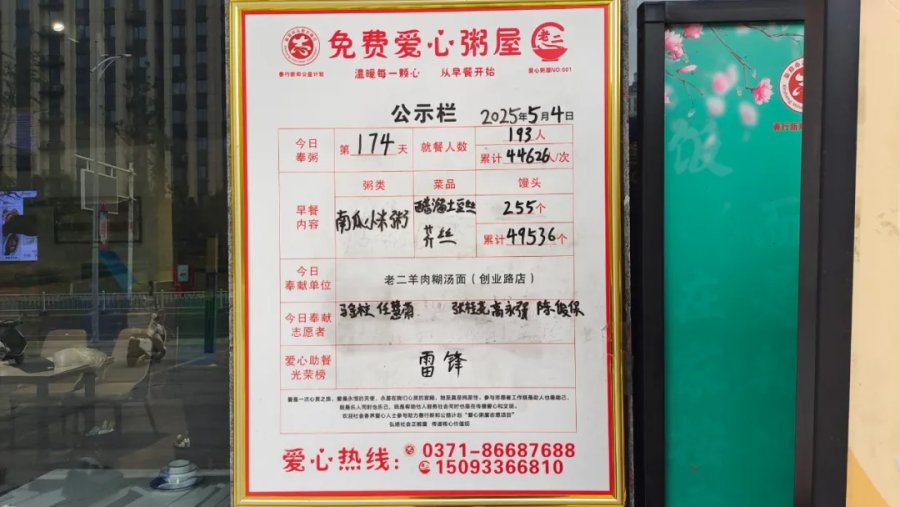 免费爱心粥屋
老二
善行新郑公益计划
温暖每一颗心 从早餐开始
爱心粥屋NO:001
公示栏 2025年5月4日
今日奉粥 第174天 就餐人数 193人
累计44626人/次
粥类 菜品 馒头
早餐内容 南瓜小米粥 醋溜土豆丝 芥丝 255个
累计49536个
今日奉献单位 老二羊肉糊汤面(创业路店)
今日奉献志愿者 任慧 张桂 高永强 陈俊保
爱心助餐光荣榜 雷锋
弘扬社会正能量 传递核心价值观
爱心热线: 0371-86687688
15093366810
饭
善行新郑